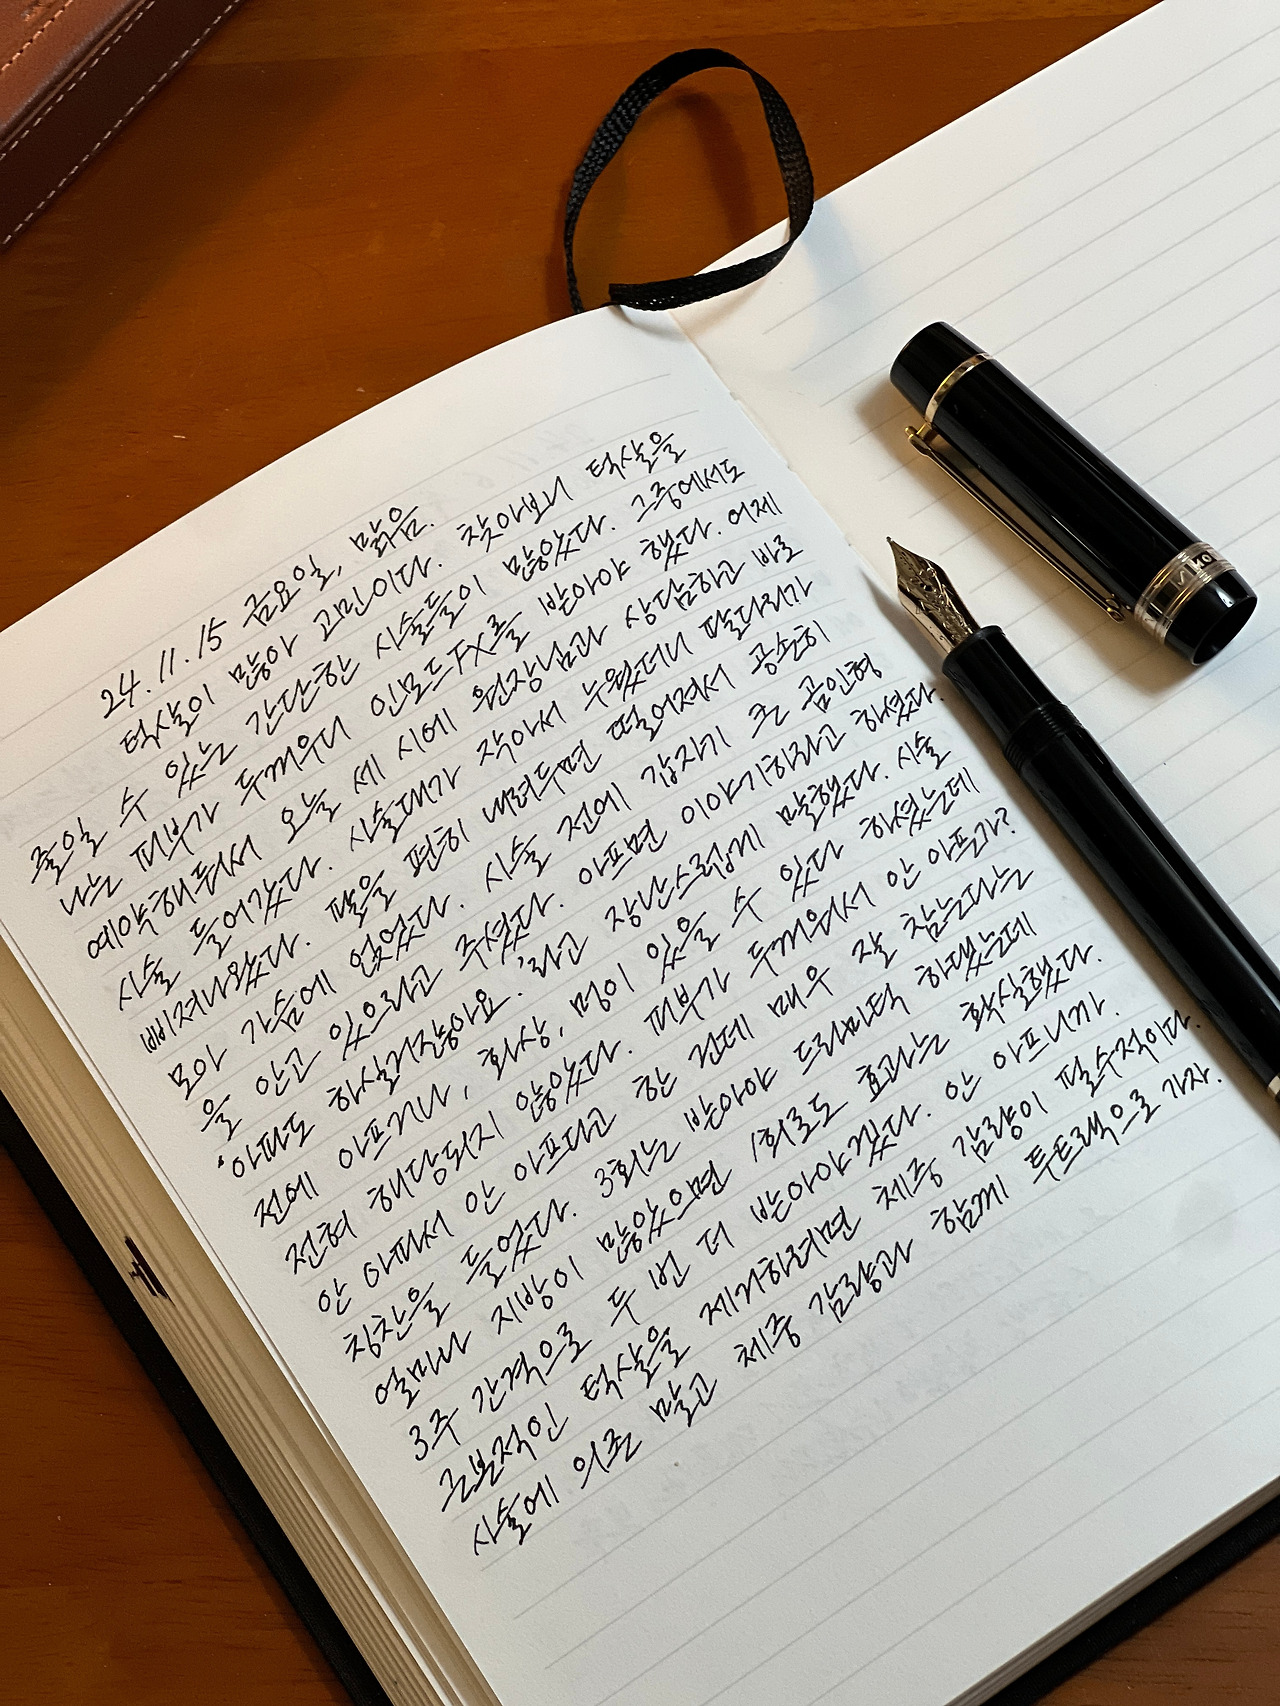 24.11.15 금요일, 맑음.
턱살이 많아 고민이다. 찾아보니 턱살을
줄일 수 있는 간단한 시술들이 많았다. 그중에서도
나는 피부가 두꺼우니 인모드FX를 받아야 했다. 어제
예약해둬서 오늘 세 시에 원장님과 상담하고 바로
시술 들어갔다. 시술대가 작아서 누웠더니 팔다리가
삐져나왔다. 팔을 편히 내려두면 떨어져서 공손히
모아 가슴에 얹었다. 시술 전에 갑자기 큰 곰인형
을 안고 있으라고 주셨다. 아프면 이야기하라고 하셨다.
'아파도 하실거잖아요.'라고 장난스럽게 말했다. 시술
전에 아프거나, 화상, 멍이 있을 수 있다 하셨는데
전혀 해당되지 않았다. 피부가 두꺼워서 안 아픈가?
안 아파서 안 아프다고 한 건데 매우 잘 참는다는
칭찬을 들었다. 3회는 받아야 드라마틱 하댔는데
얼마나 지방이 많았으면 1회로도 효과는 확실했다.
3주 간격으로 두 번 더 받아야겠다. 안 아프니까.
근본적인 턱살을 제거하려면 체중 감량이 필수적이다.
시술에 의존 말고 체중 감량과 함께 투트랙으로 가자.